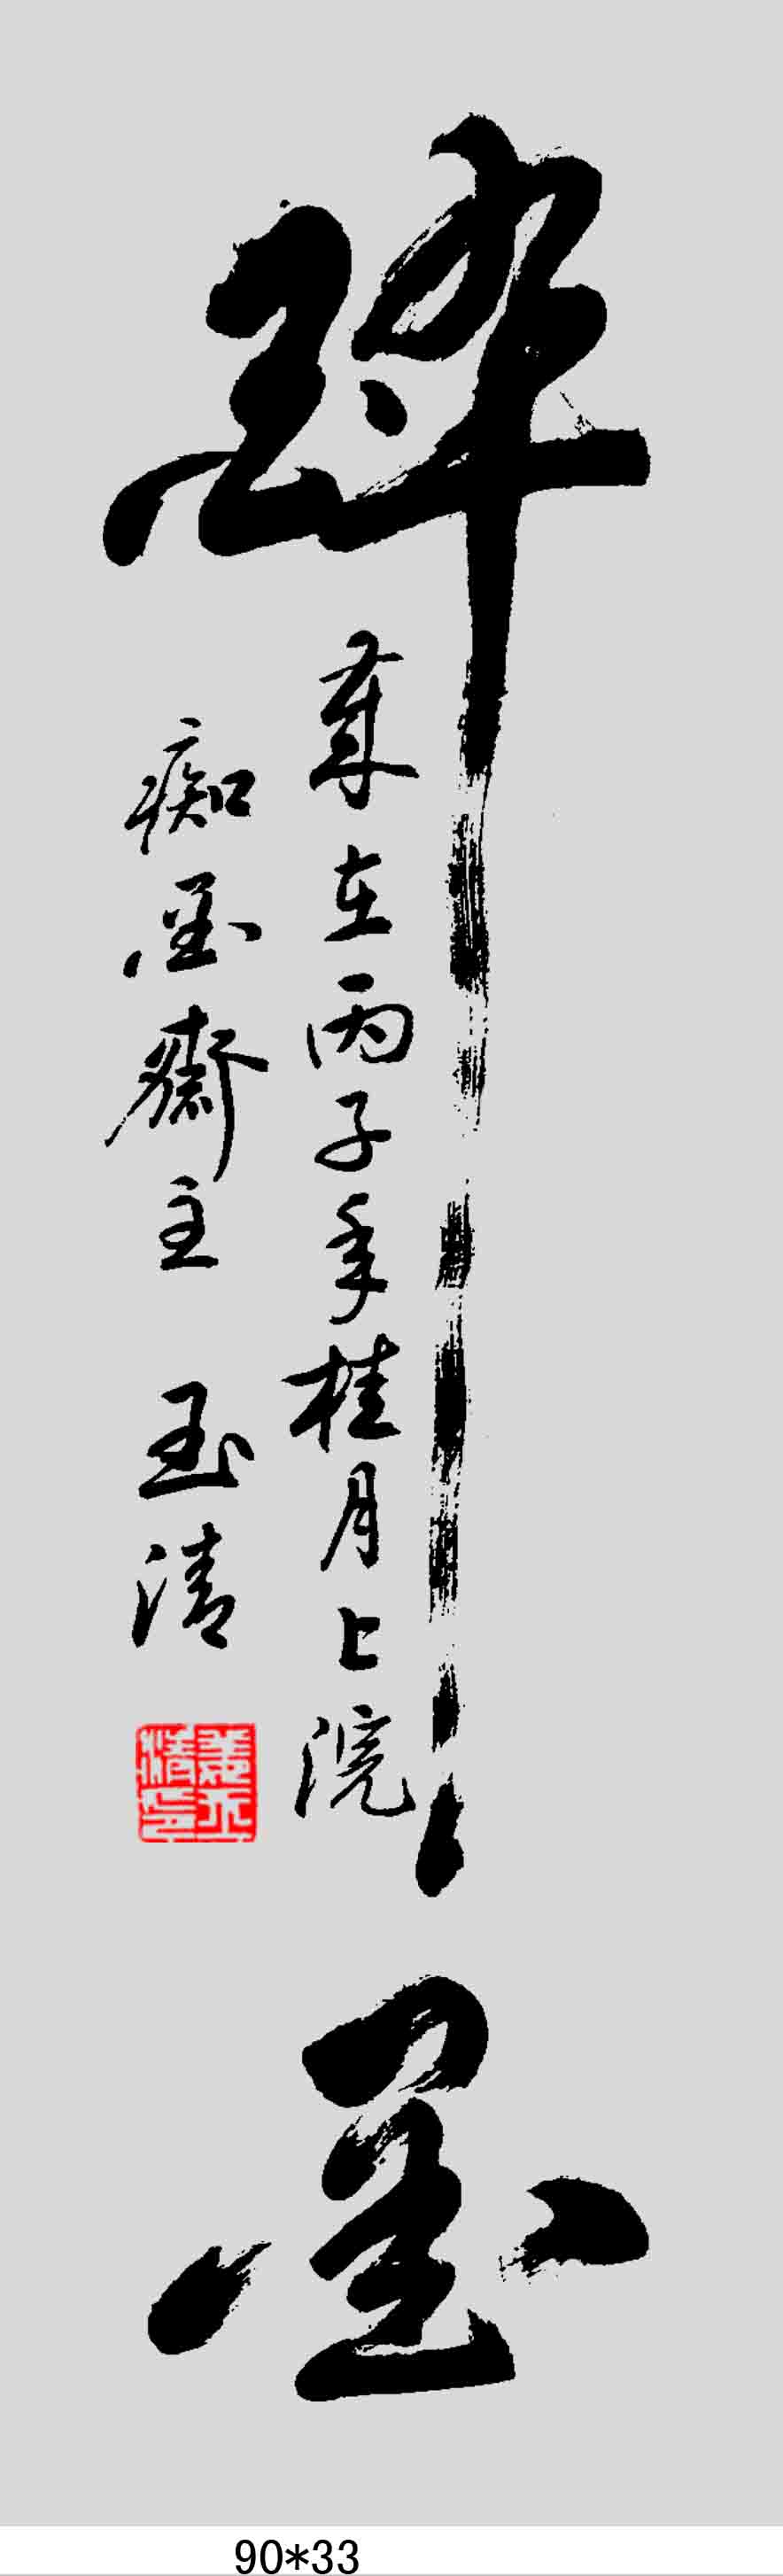 醉墨
歲在丙子年桂月上浣
痴墨齋主 玉清
90*33